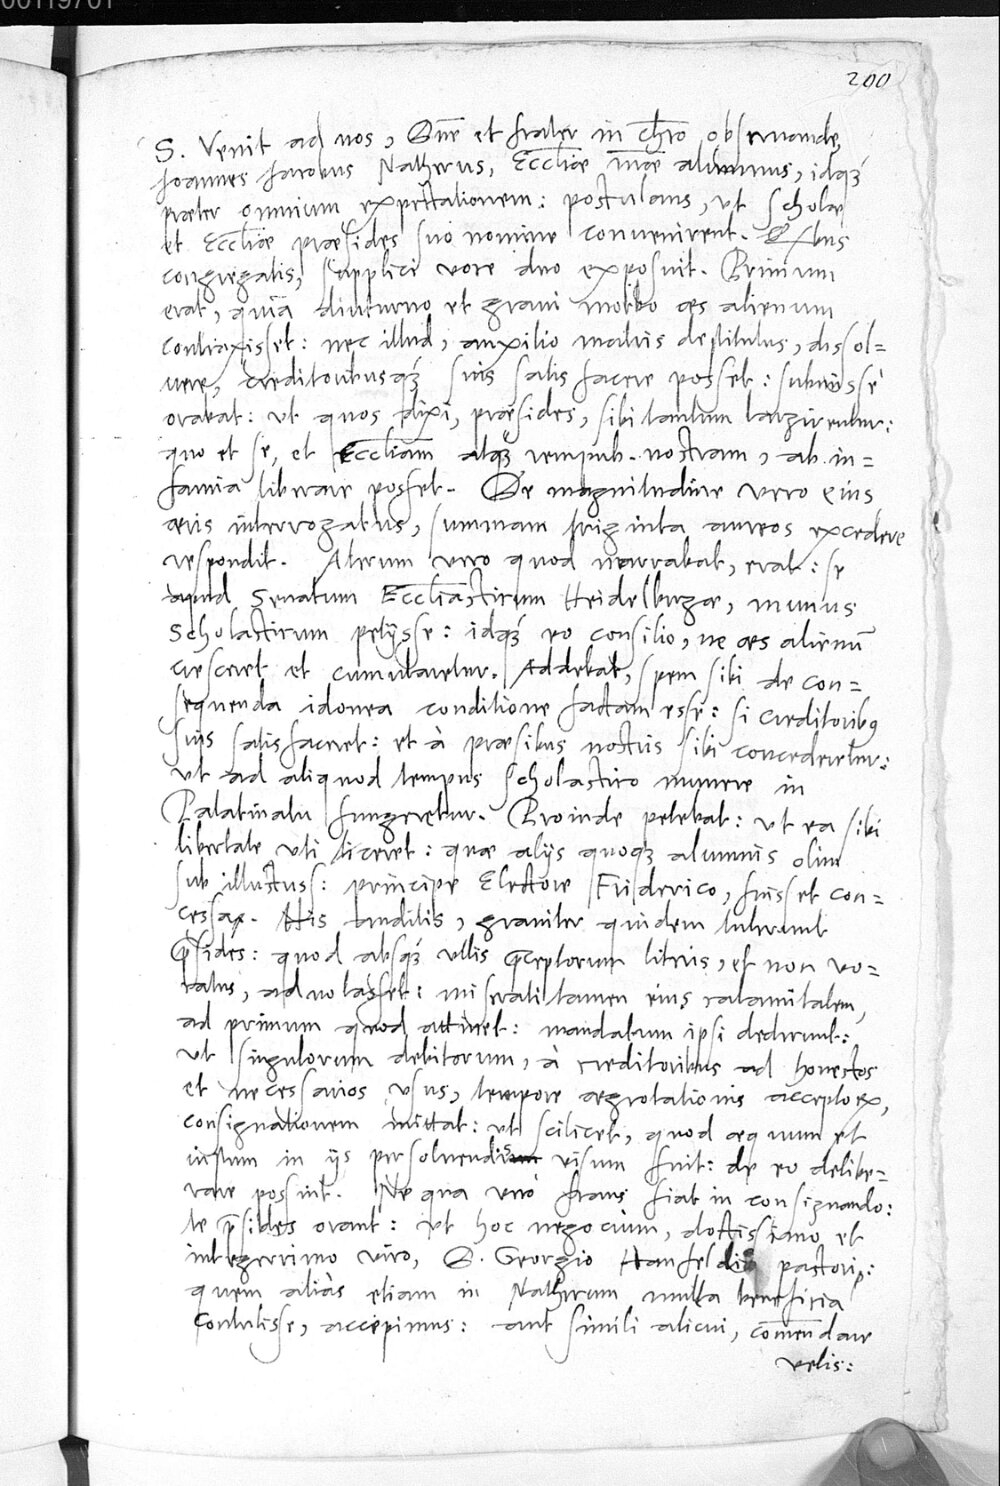 00119701
200
S. Venit ad nos, Dne et frater in Chro observande,
Joannes Jacobus Natherus, Eccliae nrae alumnus, idqȝ
praeter omnium expectationem: postulans, ut scholae
et Eccliae praesides suo nomine convenirent.
congregatis, supplici voce duo exposuit. Primum
erat, quia diuturno et gravi morbo aes alienum
contraxisset: nec illud, auxilio matris destitutus, dissol=
vere, creditoribusqȝ suis satis facere posset: submisse
orabat: ut quos dixi, praesides, sibi tantum largirentur:
quo et se, et Eccliam atqȝ rempub. nostram, ab in=
famia liberare posset. De magnitudine vero eius
aeris interrogatus, summam triginta aureos excedere
respondit. Alterum vero quod narrabat, erat: se
apud Senatum Eccliasticum Heidelbergae, munus
Scholasticum petijsse: idqȝ eo consilio, ne aes alienū
cresceret et cumularetur. Addebat, spem sibi de con=
sequenda idonea conditione factam esse: si creditoribꝰ
suis satis faceret: et à praesibus nostris sibi concederetur:
ut ad aliquod tempus scholastico munere in
Palatinatu fungeretur. Proinde petebat: ut ea sibi
libertate uti liceret: quae alijs quoqȝ alumnis olim
sub illustuss: principe Electore Friderico, fuisset con=
cessa. His auditis, graviter quidem tulerunt
p̄sides: quod absqȝ ullis p̄ceptorum litris, et non vo=
catus, advolasset: miserati tamen eius calamitatem,
ad primum quod attinet: mandatum ipsi dederunt:
ut singulorum debitorum, à creditoribus ad honestos
et necessarios usus, tempore aegrotationis acceptorū,
consignationem mittat: ut scilicet, quod aequum et
iustum in ijs persolvendis visum fuit: de eo delibe=
rare possint. Ne qua vero fraus fiat in consignando:
te p̄sides orant: ut hoc negocium, doctissimo et
integerrimo viro, D. Georgio Hanfeldio pastori:
quem aliàs etiam in Natherum multa beneficia
contulisse, accepimus: aut simili alicui, cōmendare
velis: